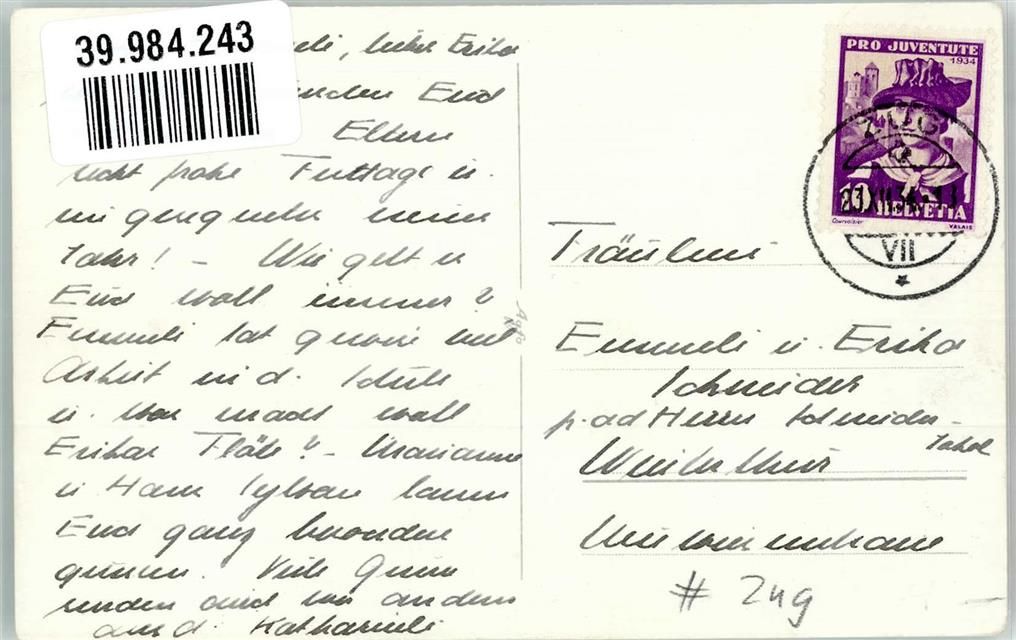 39.984.243
liebe Erika
Euch
Eltern
recht frohe Festtage u.
ein gesegnetes neues
Jahr! – Wie geht es
Euch wohl immer?
Emmeli hat gewiss viel
Arbeit in d. Schule
u. was macht wohl
Erikas Flöte? – Marianne
u Hans Sylvan lassen
Euch ganz besonders
grüssen. Viele Grüsse
senden auch wir andern
auch d. Kathrineli
PRO JUVENTUTE
1934
10 HELVETIA
Courvoisier
VALAIS
ZUG
23.XII.34
VII
Fräulein
Emmeli u. Erika
Schneider
p. ad Herrn Schneider-
Winterthur
# Zug